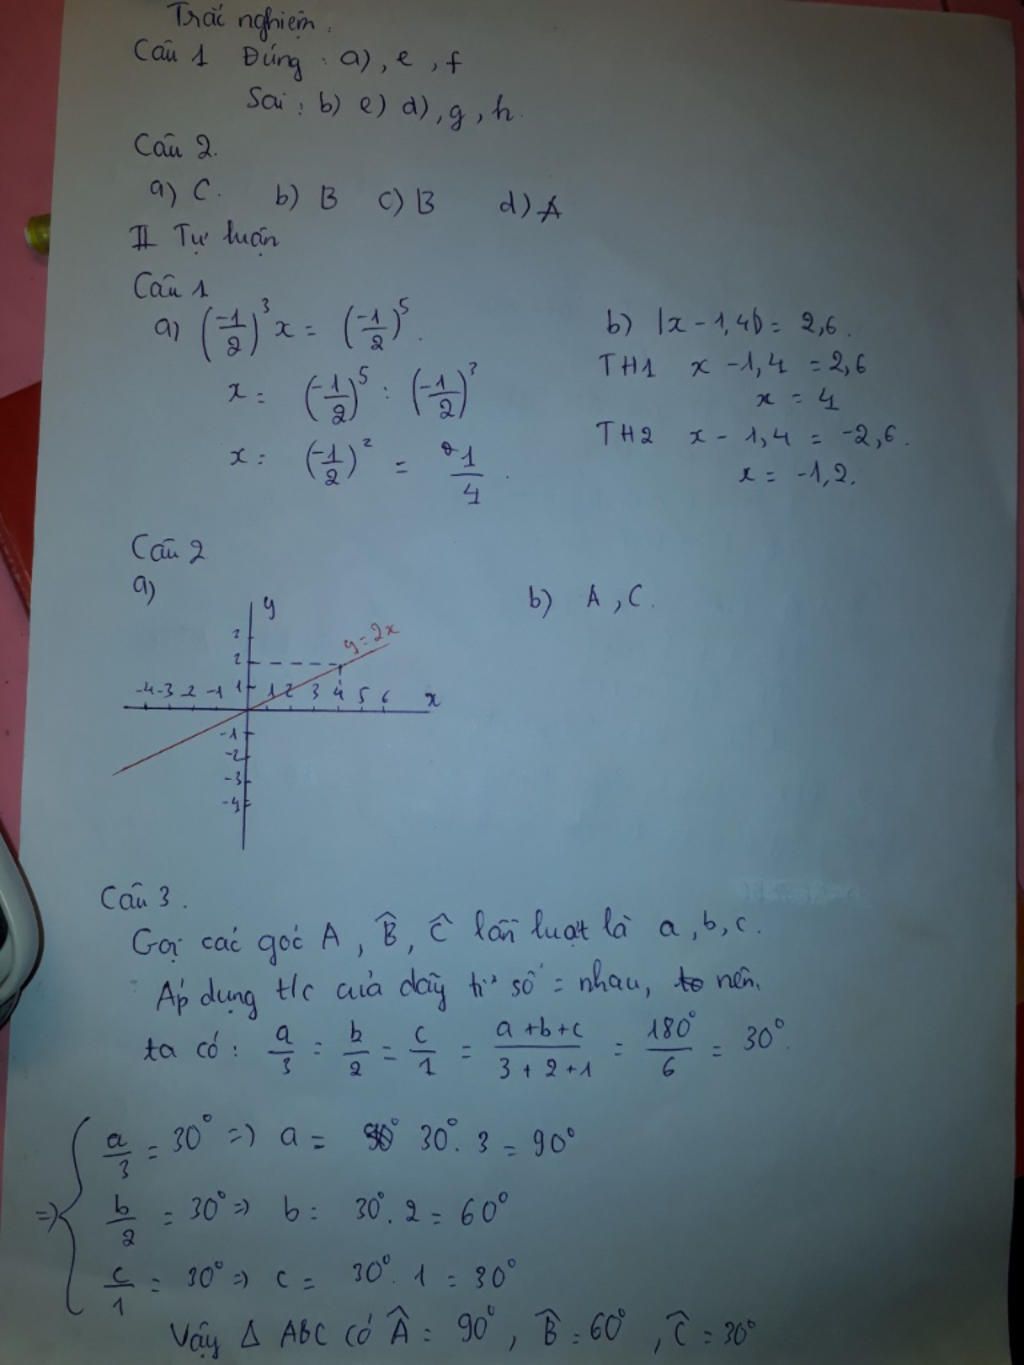 Trắc nghiệm.
Câu 1 Đúng : a), e, f
Sai : b) e) d), g, h.
Câu 2.
a) C. b) B c) B d) A
II Tự luận
Câu 1
a) (-1/2)³ x = (-1/2)⁵.
x = (-1/2)⁵ : (-1/2)³
x = (-1/2)² = 1/4.
b) |x - 1,4| = 2,6.
TH1 x - 1,4 = 2,6
x = 4
TH2 x - 1,4 = -2,6.
x = -1,2.
Câu 2
a)
y
y = 2x
2
2
1
-4 -3 -2 -1 1 2 3 4 5 6 x
-1
-2
-3
-4
b) A, C.
Câu 3.
Gọi các góc A, B̂, Ĉ lần luợt là a, b, c.
Áp dụng t/c của dãy tỉ số = nhau, nên.
ta có : a/3 = b/2 = c/1 = (a+b+c)/(3+2+1) = 180°/6 = 30°.
=> { a/3 = 30° => a = 30°. 3 = 90°
b/2 = 30° => b = 30°. 2 = 60°
c/1 = 30° => c = 30°. 1 = 30°
Vậy Δ ABC có Â = 90°, B̂ = 60°, Ĉ = 30°